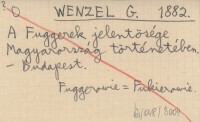 WENZEL G. 1882.
A Fuggerek jelentősége
Magyarország történetében.
- Budapest.
Fuggerowie = Fukierowie.